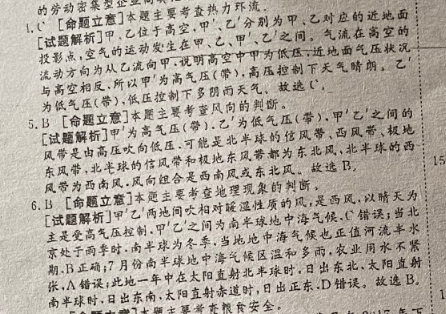 的劳动密集型企业向
4.C 【命题立意】本题主要考查热力环流。
【试题解析】甲、乙位于高空,甲′、乙′分别为甲、乙对应的近地面
投影点,空气的运动发生在甲、乙、甲′、乙′之间。气流在高空的
流动方向为从乙流向甲,说明高空中甲为低压,近地面气压状况
与高空相反,所以甲′为高气压(带),高压控制下天气晴朗。乙′
为低气压(带),低压控制下多阴雨天气。故选C。
5.B 【命题立意】本题主要考查风向的判断。
【试题解析】甲′为高气压(带),乙′为低气压(带),甲′乙′之间的
风带是由高压吹向低压,可能是北半球的信风带、西风带、极地
东风带,北半球的信风带和极地东风带都为东北风,北半球的西
风带为西南风,风向组合是西南风或东北风。故选B。
6.B 【命题立意】本题主要考查地理现象的判断。
【试题解析】甲′乙′两地间吹相对暖湿性质的风,是西风,以晴天为
主是受高气压控制,甲′乙′之间为南半球地中海气候,C错误;当北
京处于雨季时,南半球为冬季,当地地中海气候也正值河流丰水
期,B正确;7月份南半球地中海气候区温和多雨,农业用水不紧
张,A错误;此地一年中在太阳直射北半球时,日出东北,太阳直射
南半球时,日出东南,太阳直射赤道时,日出正东,D错误。故选B。
本题主要考查粮食安全。
15